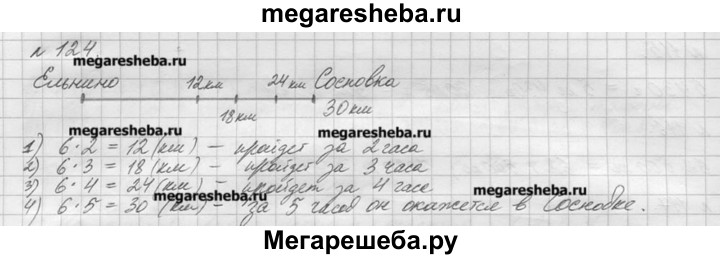 megaresheba.ru
№ 124.
megaresheba.ru
Ельнино 12км 24км Сосновка
18км 30км
megaresheba.ru megaresheba.ru
1) 6·2 = 12 (км) – пройдет за 2 часа
2) 6·3 = 18 (км) – пройдет за 3 часа
megaresheba.ru
3) 6·4 = 24 (км) – пройдет за 4 часа
megaresheba.ru
4) 6·5 = 30 (км) – за 5 часов он окажется в Сосновке.
Мегарешеба.ру